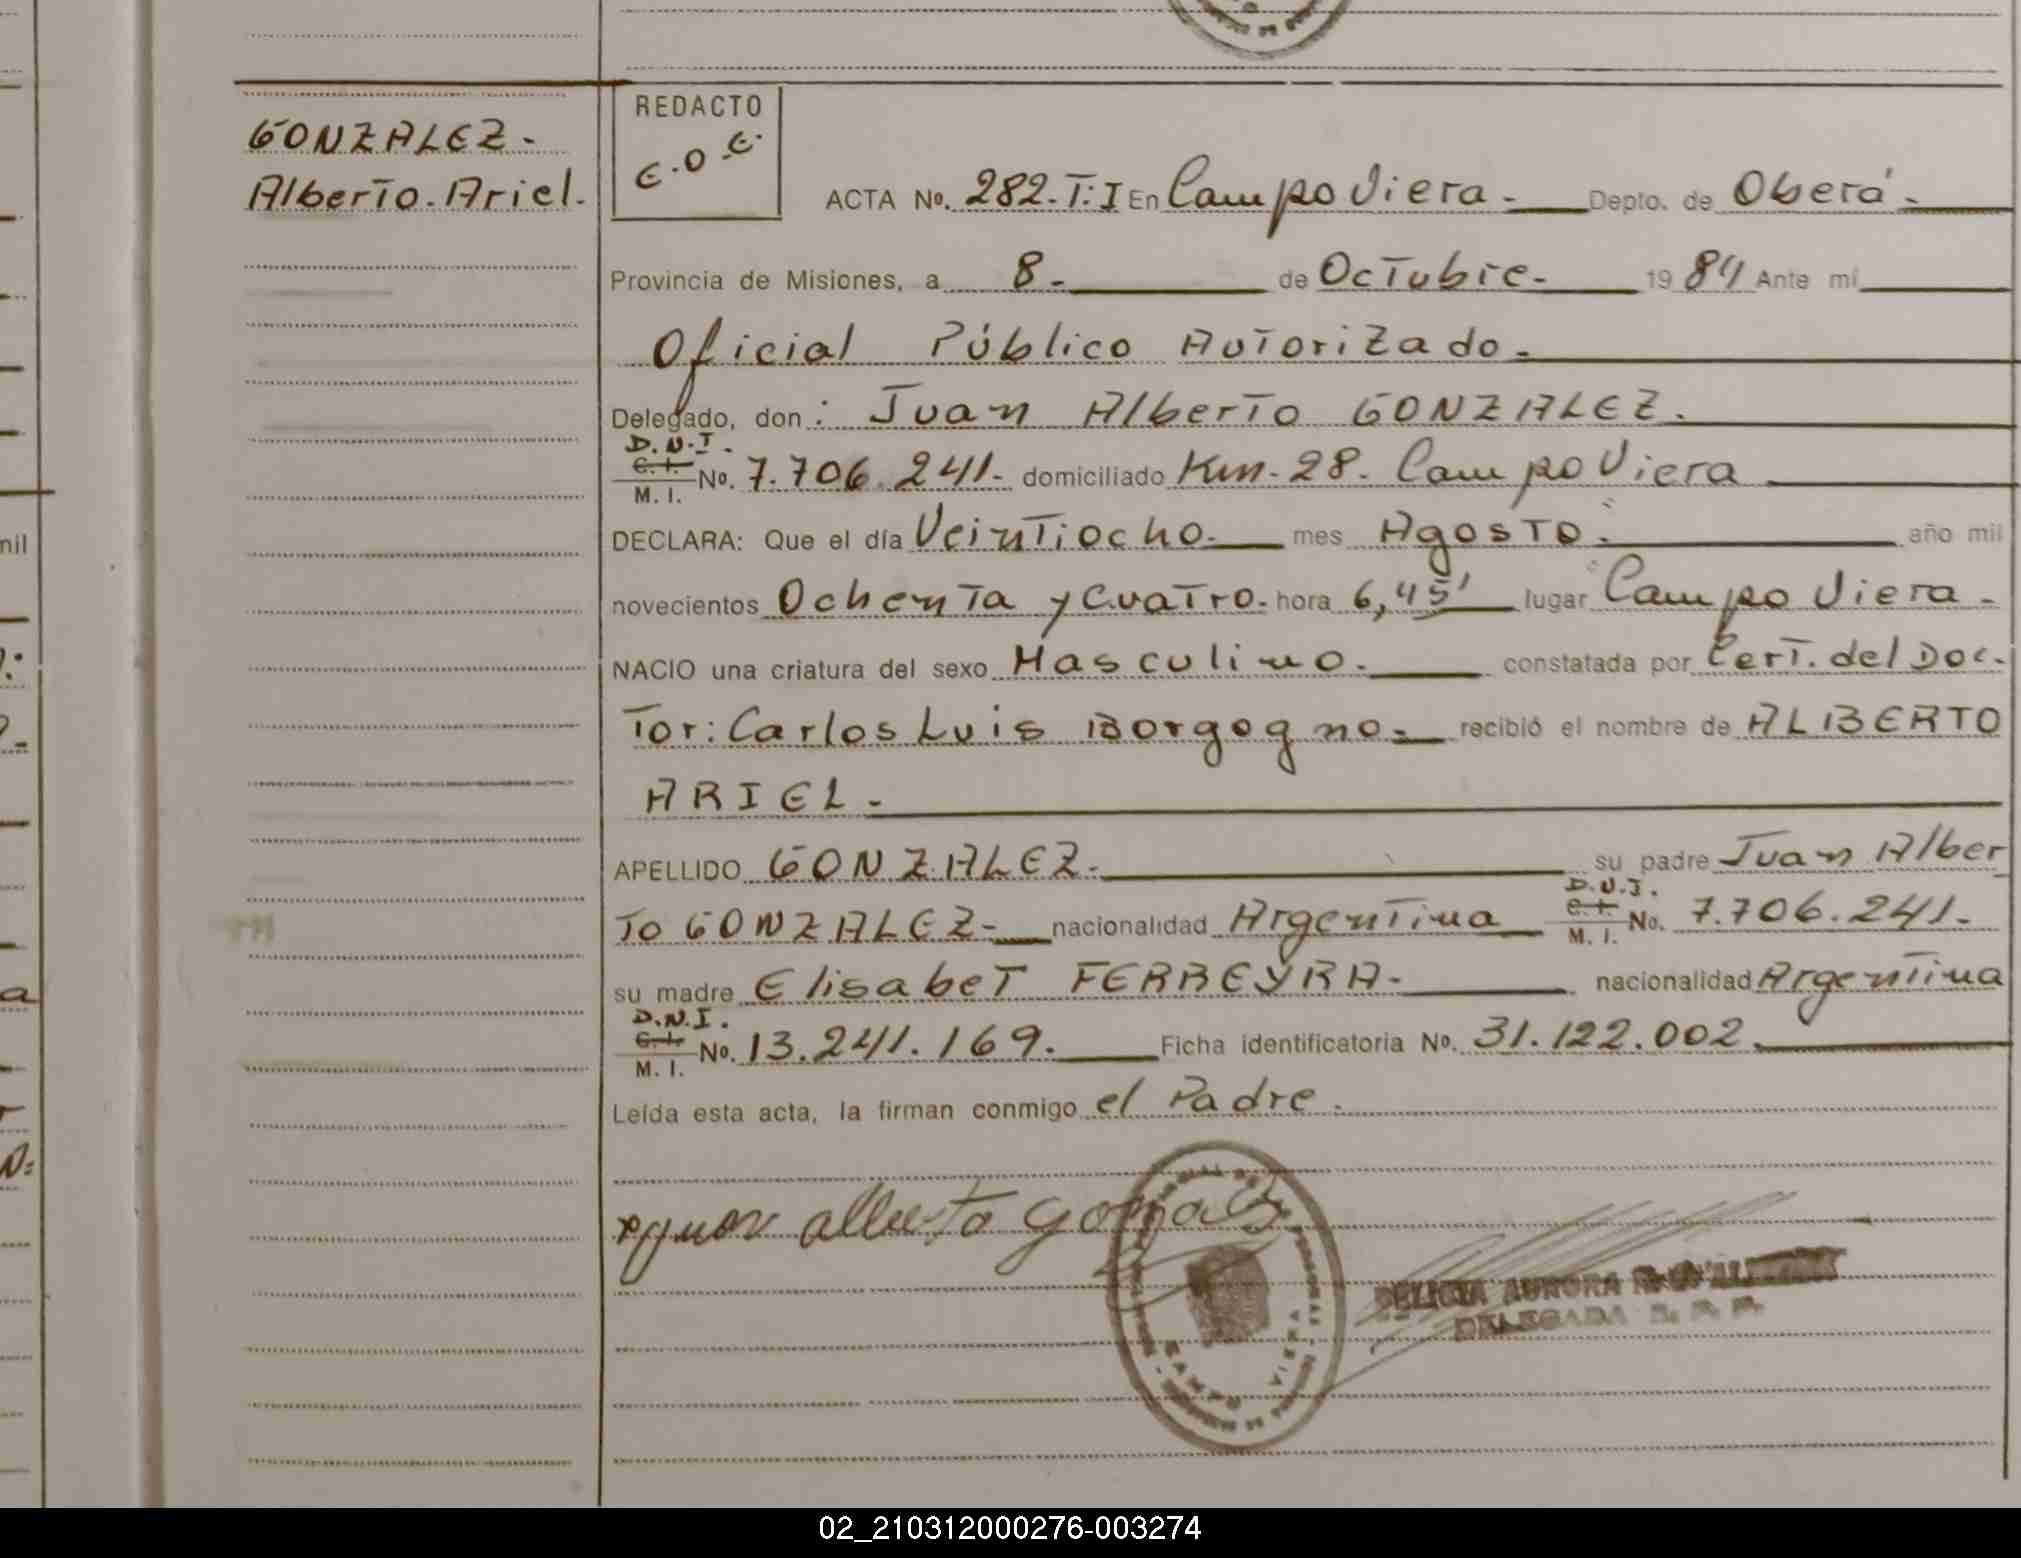 GONZALEZ.-
Alberto. Ariel.
REDACTO
E.O.E.
ACTA No. 282. T: I En Campo Viera.- Depto. de Oberá.-
Provincia de Misiones, a 8.- de Octubre.- 1984 Ante mí
Oficial Público Autorizado.-
Delegado, don: Juan Alberto GONZALEZ.
D.N.I.
C.I.
M. I. No. 7.706.241.- domiciliado Km-28. Campo Viera
DECLARA: Que el día Veintiocho.- mes Agosto.- año mil
novecientos Ochenta y Cuatro.- hora 6,45' lugar Campo Viera.-
NACIO una criatura del sexo Masculino.- constatada por Cert. del Doc-
tor: Carlos Luis Borgogno.- recibió el nombre de ALBERTO
ARIEL.-
APELLIDO GONZALEZ.- su padre Juan Alber
to GONZALEZ.- nacionalidad Argentina D.N.I. C.I. M. I. No. 7.706.241.-
su madre Elisabet FERREYRA.- nacionalidad Argentina
D.N.I.
C.I.
M. I. No. 13.241.169.- Ficha identificatoria No. 31.122.002.-
Leída esta acta, la firman conmigo el Padre.
Juan alberto gonzalez
DELICIA AURORA
DELEGADA R. P. P.
nil
a
02_210312000276-003274